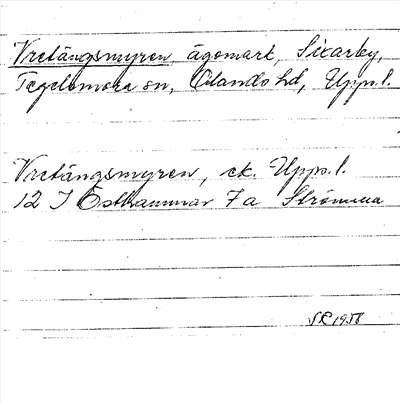 Vretängsmyren ägomark, Sixarby,
Tegelsmora sn, Olands hd, Uppl.
Vretängsmyren, ek. Uppl.
12 I Östhammar 7a Strömma
1958